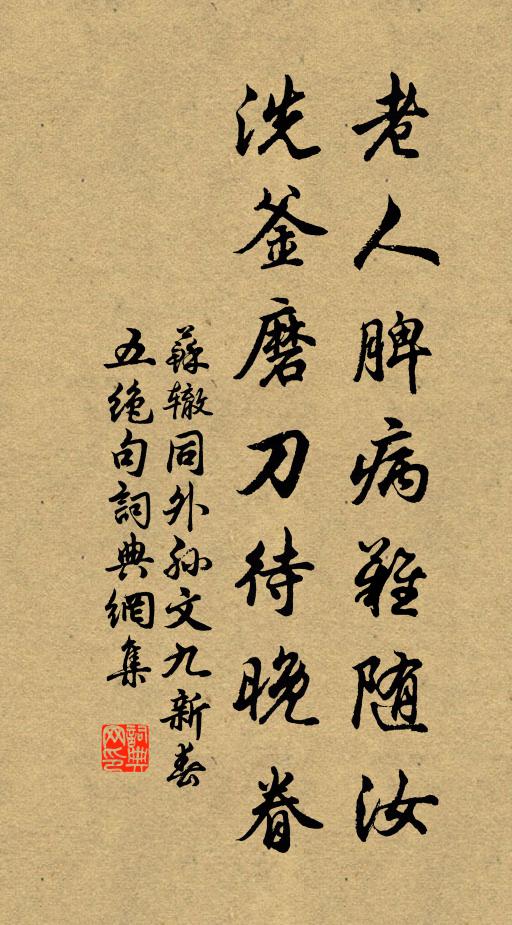 老人脾病难随汝
洗釜磨刀待晚眷
蘇辙同外孙文九新春
五绝句詞典網集
詞典网印